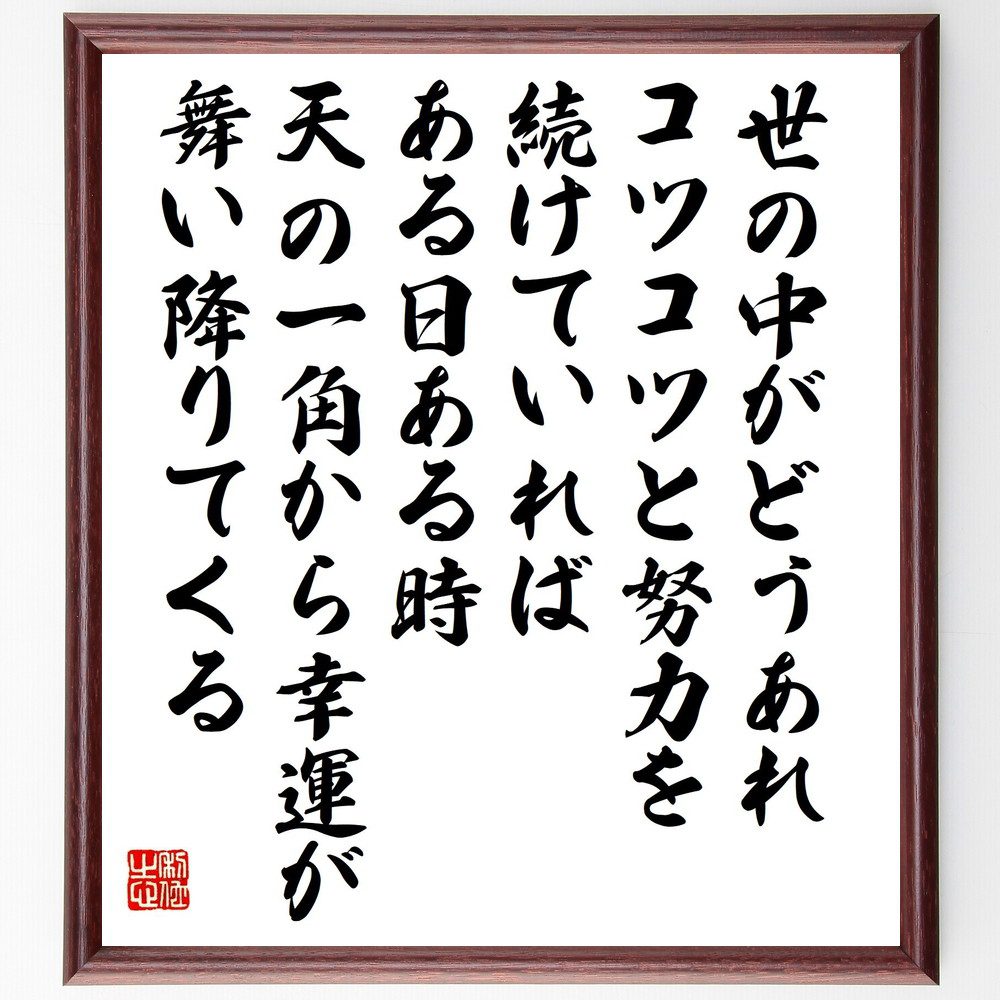 世の中がどうあれ
コツコツと努力を
続けていれば
ある日ある時
天の一角から幸運が
舞い降りてくる